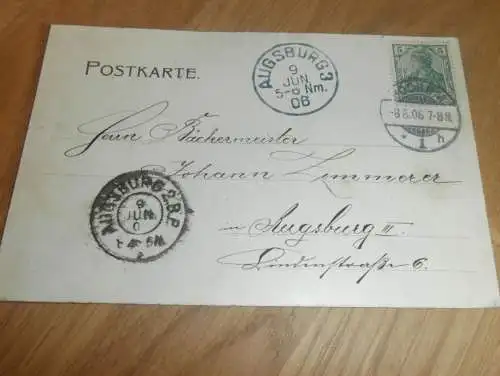 POSTKARTE.
AUGSBURG 3
9
JUN.
5-6 Nm.
06
5 5
-8.6.06 7-8N.
* 1 h
Herrn Bäckermeister
Johann Zimmerer
in Augsburg III.
Lindenstraße 6.
AUGSBURG 2.B.P.
9
JUN